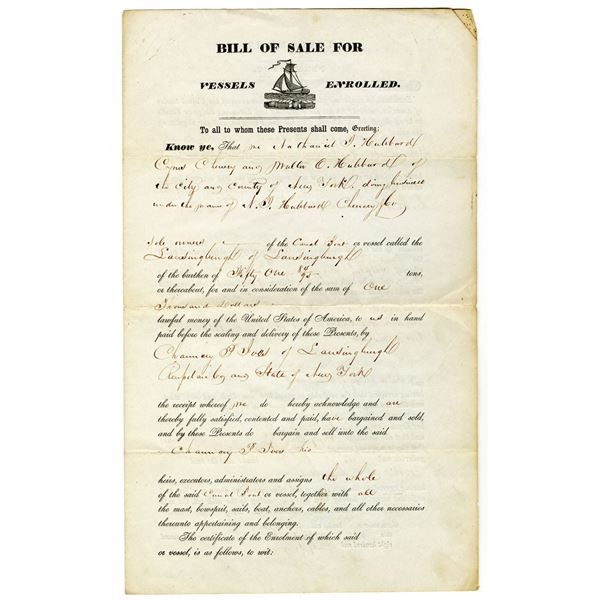 BILL OF SALE FOR
VESSELS ENROLLED.
To all to whom these Presents shall come, Greeting:
Know ye, That we Nathaniel T. Hubbard
Cyrus Chenery and Walter C. Hubbard of
the City and County of New York. doing business
under the name of N. T. Hubbard Chenery & Co
Sole owners of the Canal Boat or vessel called the
Lansingburgh of Lansingburgh
of the burthen of Fifty One tons,
or thereabout, for and in consideration of the sum of One
Thousand Dollars
lawful money of the United States of America, to us in hand
paid before the sealing and delivery of these Presents, by
Chauncey P. Ives of Lansingburgh
and State of New York
the receipt whereof we do hereby acknowledge and are
thereby fully satisfied, contented and paid, have bargained and sold,
and by these Presents do bargain and sell unto the said
Chauncey P. Ives his
heirs, executors, administrators and assigns the whole
of the said Canal Boat or vessel, together with all
the mast, bowsprit, sails, boat, anchors, cables, and all other necessaries
thereunto appertaining and belonging.
The certificate of the Enrolment of which said
or vessel, is as follows, to wit: